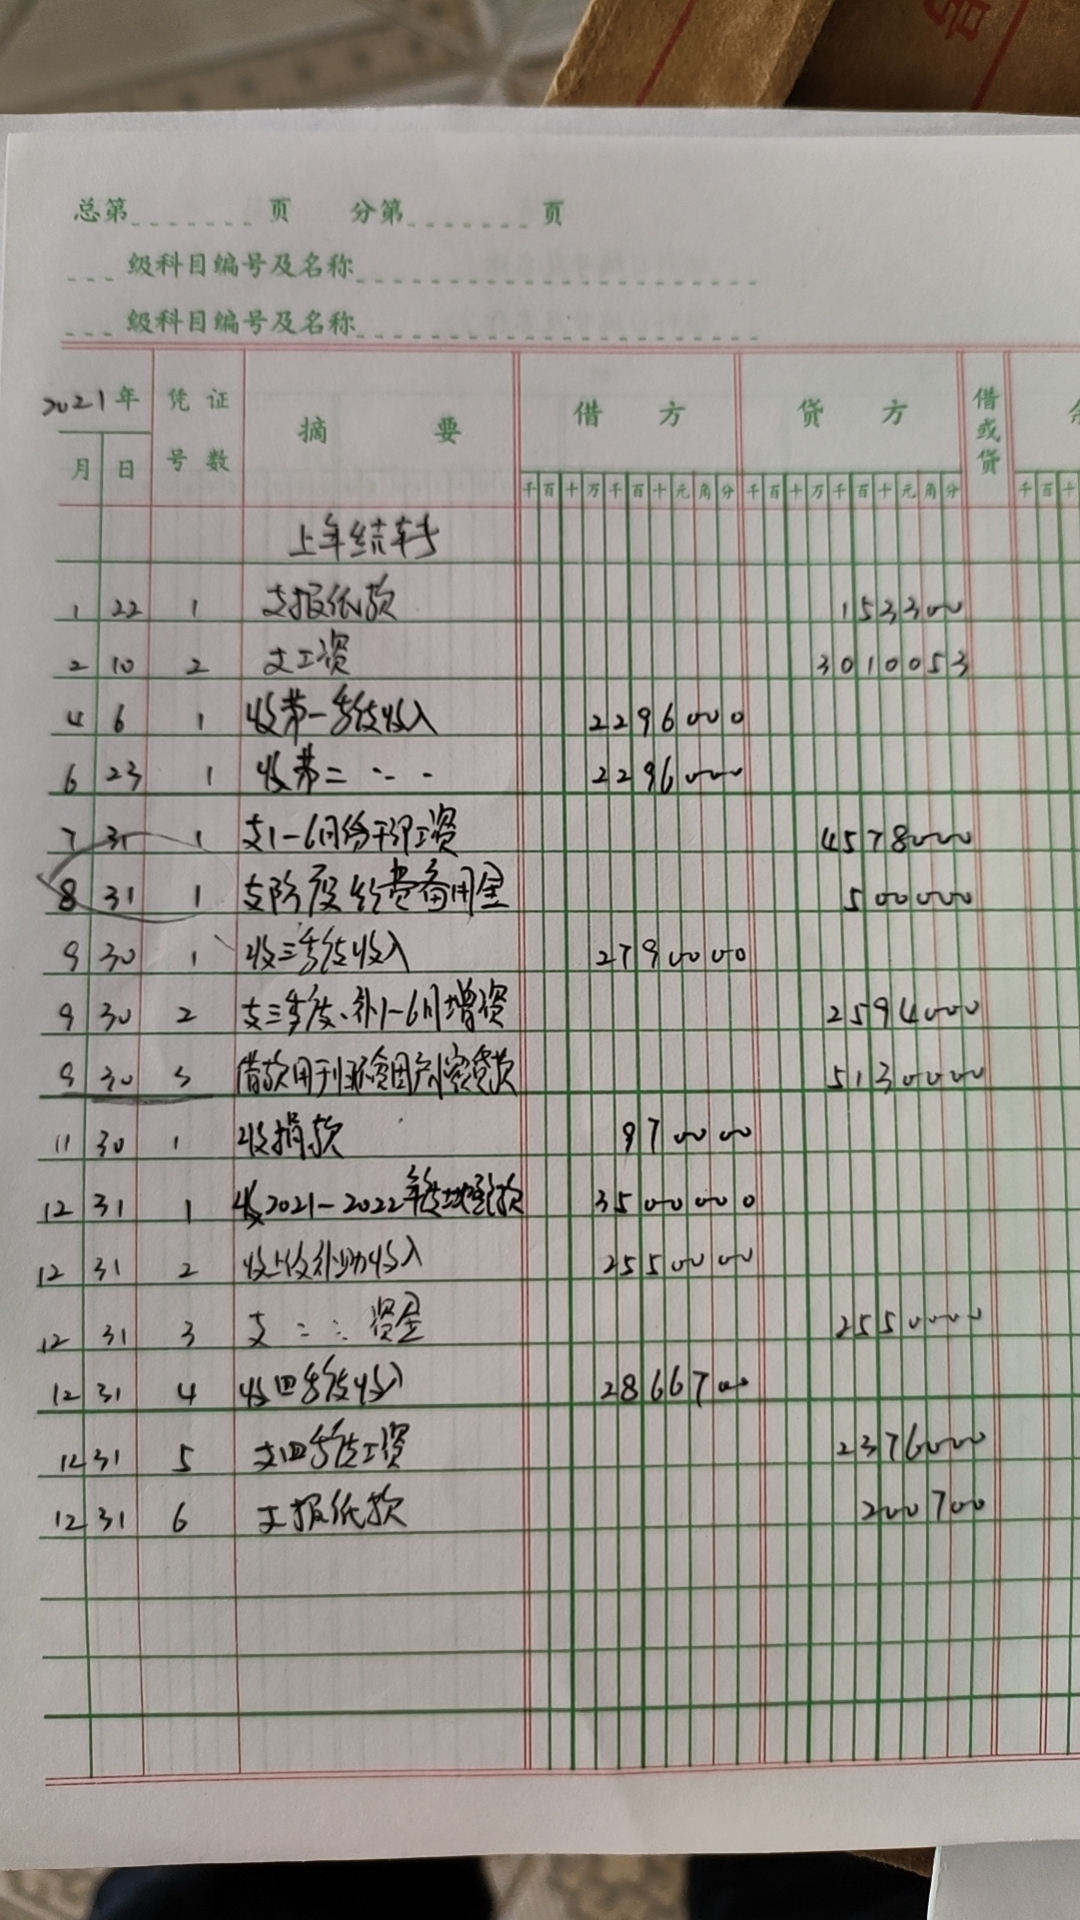 总第 页 分第 页
级科目编号及名称
级科目编号及名称
2021年 凭证 摘要 借方 贷方 借或贷
月 日 号数 千百十万千百十元角分 千百十万千百十元角分 千百十
上年结转
1 22 1 支报纸款 153300
2 10 2 支工资 3010053
4 6 1 收第一季度收入 2296000
6 23 1 收第二 〃 〃 2296000
7 31 1 支1-6月份干部工资 4578000
8 31 1 支阶段经费备用金 500000
9 30 1 收三季度收入 2790000
9 30 2 支三季度、补1-6月增资 2594000
9 30 3 借款用于 贷款 5130000
11 30 1 收捐款 970000
12 31 1 收2021-2022年度 款 3500000
12 31 2 收上级补助收入 2550000
12 31 3 支 〃 〃 资金 2550000
12 31 4 收四季度收入 2866700
12 31 5 支四季度工资 2376000
12 31 6 支报纸款 200700